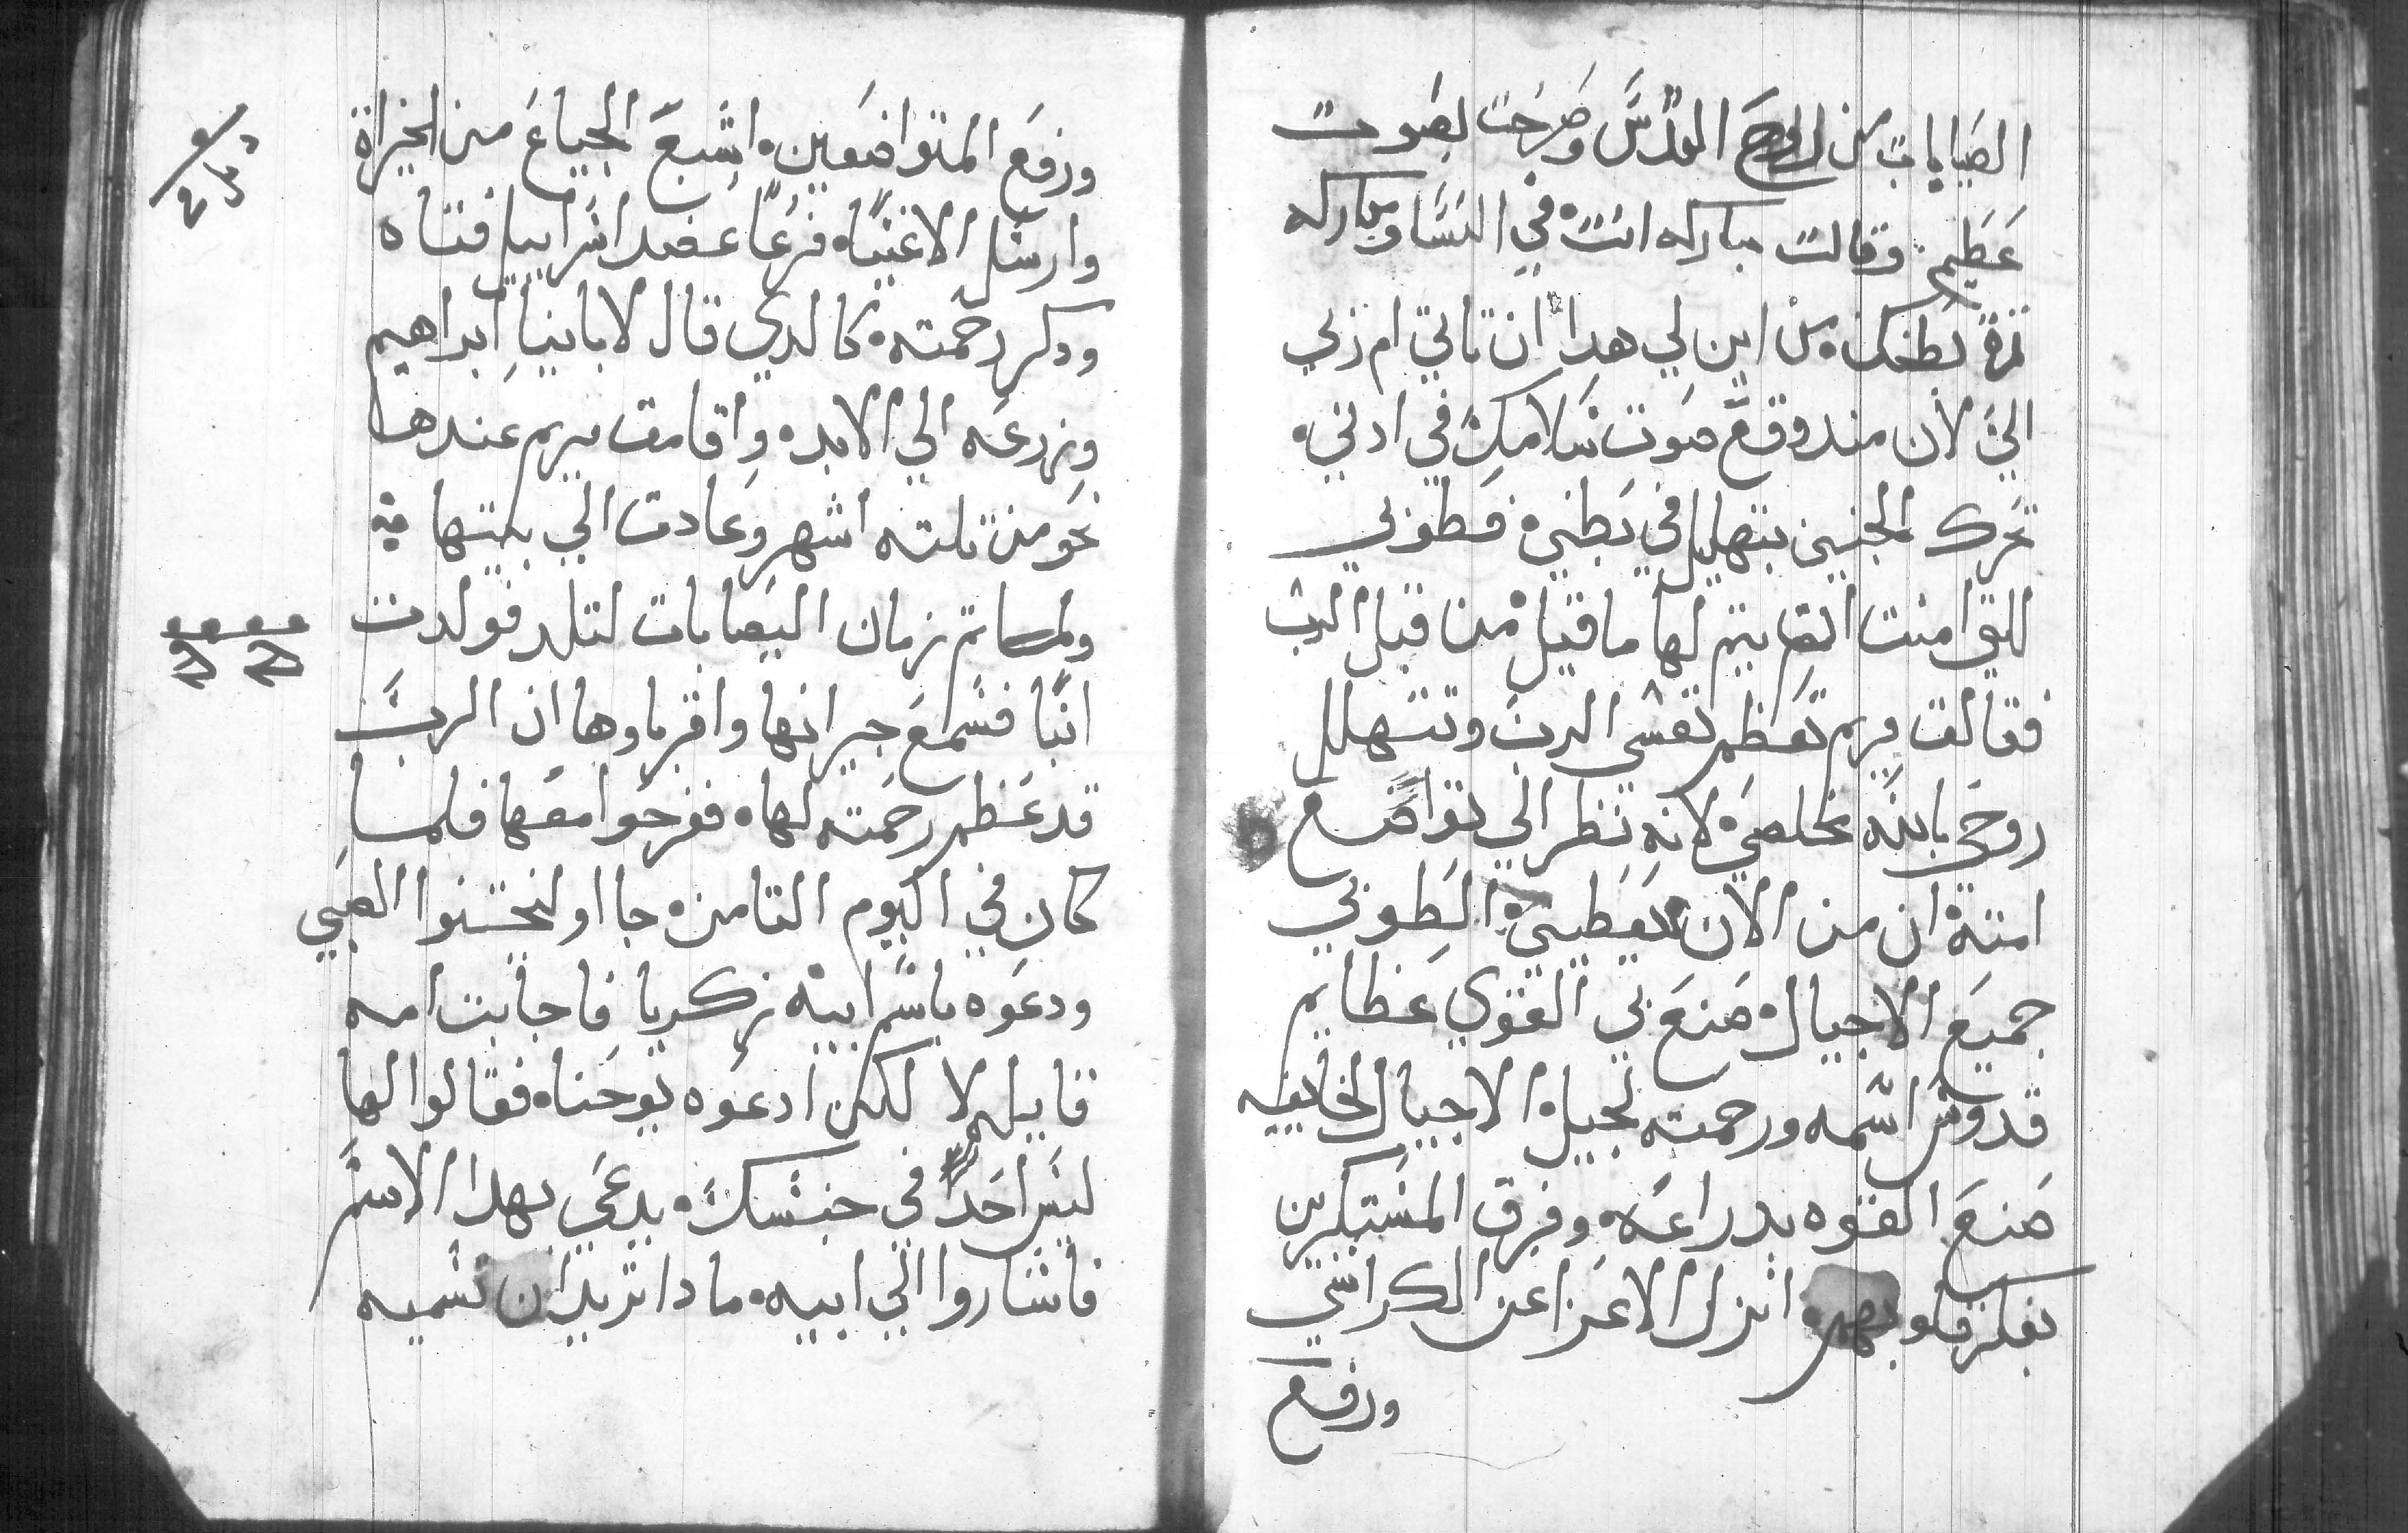 الصابات من الروح القدس وصرخت بصوت
عظيم وقالت مباركه انت في النسا ومباركه
ثمرة بطنك من اين لي هدا ان تاتي ام ربي
الي لان مند وقع صوت سلامك في ادني
تحرك الجنين بتهليل في بطني فطوبي
للتي امنت انه يتم لها ما قيل من قبل الرب
فقالت مريم تعظم نفسي الرب وتتهلل
روحي بالله مخلصي لانه نظر الي تواضع
امته ان من الان يعطيني الطوبي
جميع الاجيال صنع بي القوي عظايم
قدوس اسمه ورحمته لجيل الاجيال لخايفيه
صنع القوه بدراعه وفرق المستكبرين
بفكر قلوبهم انزل الاعزا عن الكراسي
ورفع
ورفع المتواضعين اشبع الجياع من الخيراة
وارسل الاغنيا فرغا عضد اسراييل فتاه
ودكر رحمته كالدي قال لاباينا ابراهيم
وزرعه الي الابد واقامت مريم عندها
نحو من تلته اشهر وعادت الي بيتها
ولما تم زمان اليصابات لتلد فولدت
ابنا فسمع جيرانها واقرباوها ان الرب
قد عظم رحمته لها ففرحوا معها فلما
كان في اليوم التامن جااو ليختنوا الصبي
ودعوه باسم ابيه زكريا فاجابت امه
قايله لا لكن ادعوه يوحنا فقالوا لها
ليس احد في جنسك يدعي بهدا الاسم
فاشاروا الي ابيه ما دا تريد ان تسميه